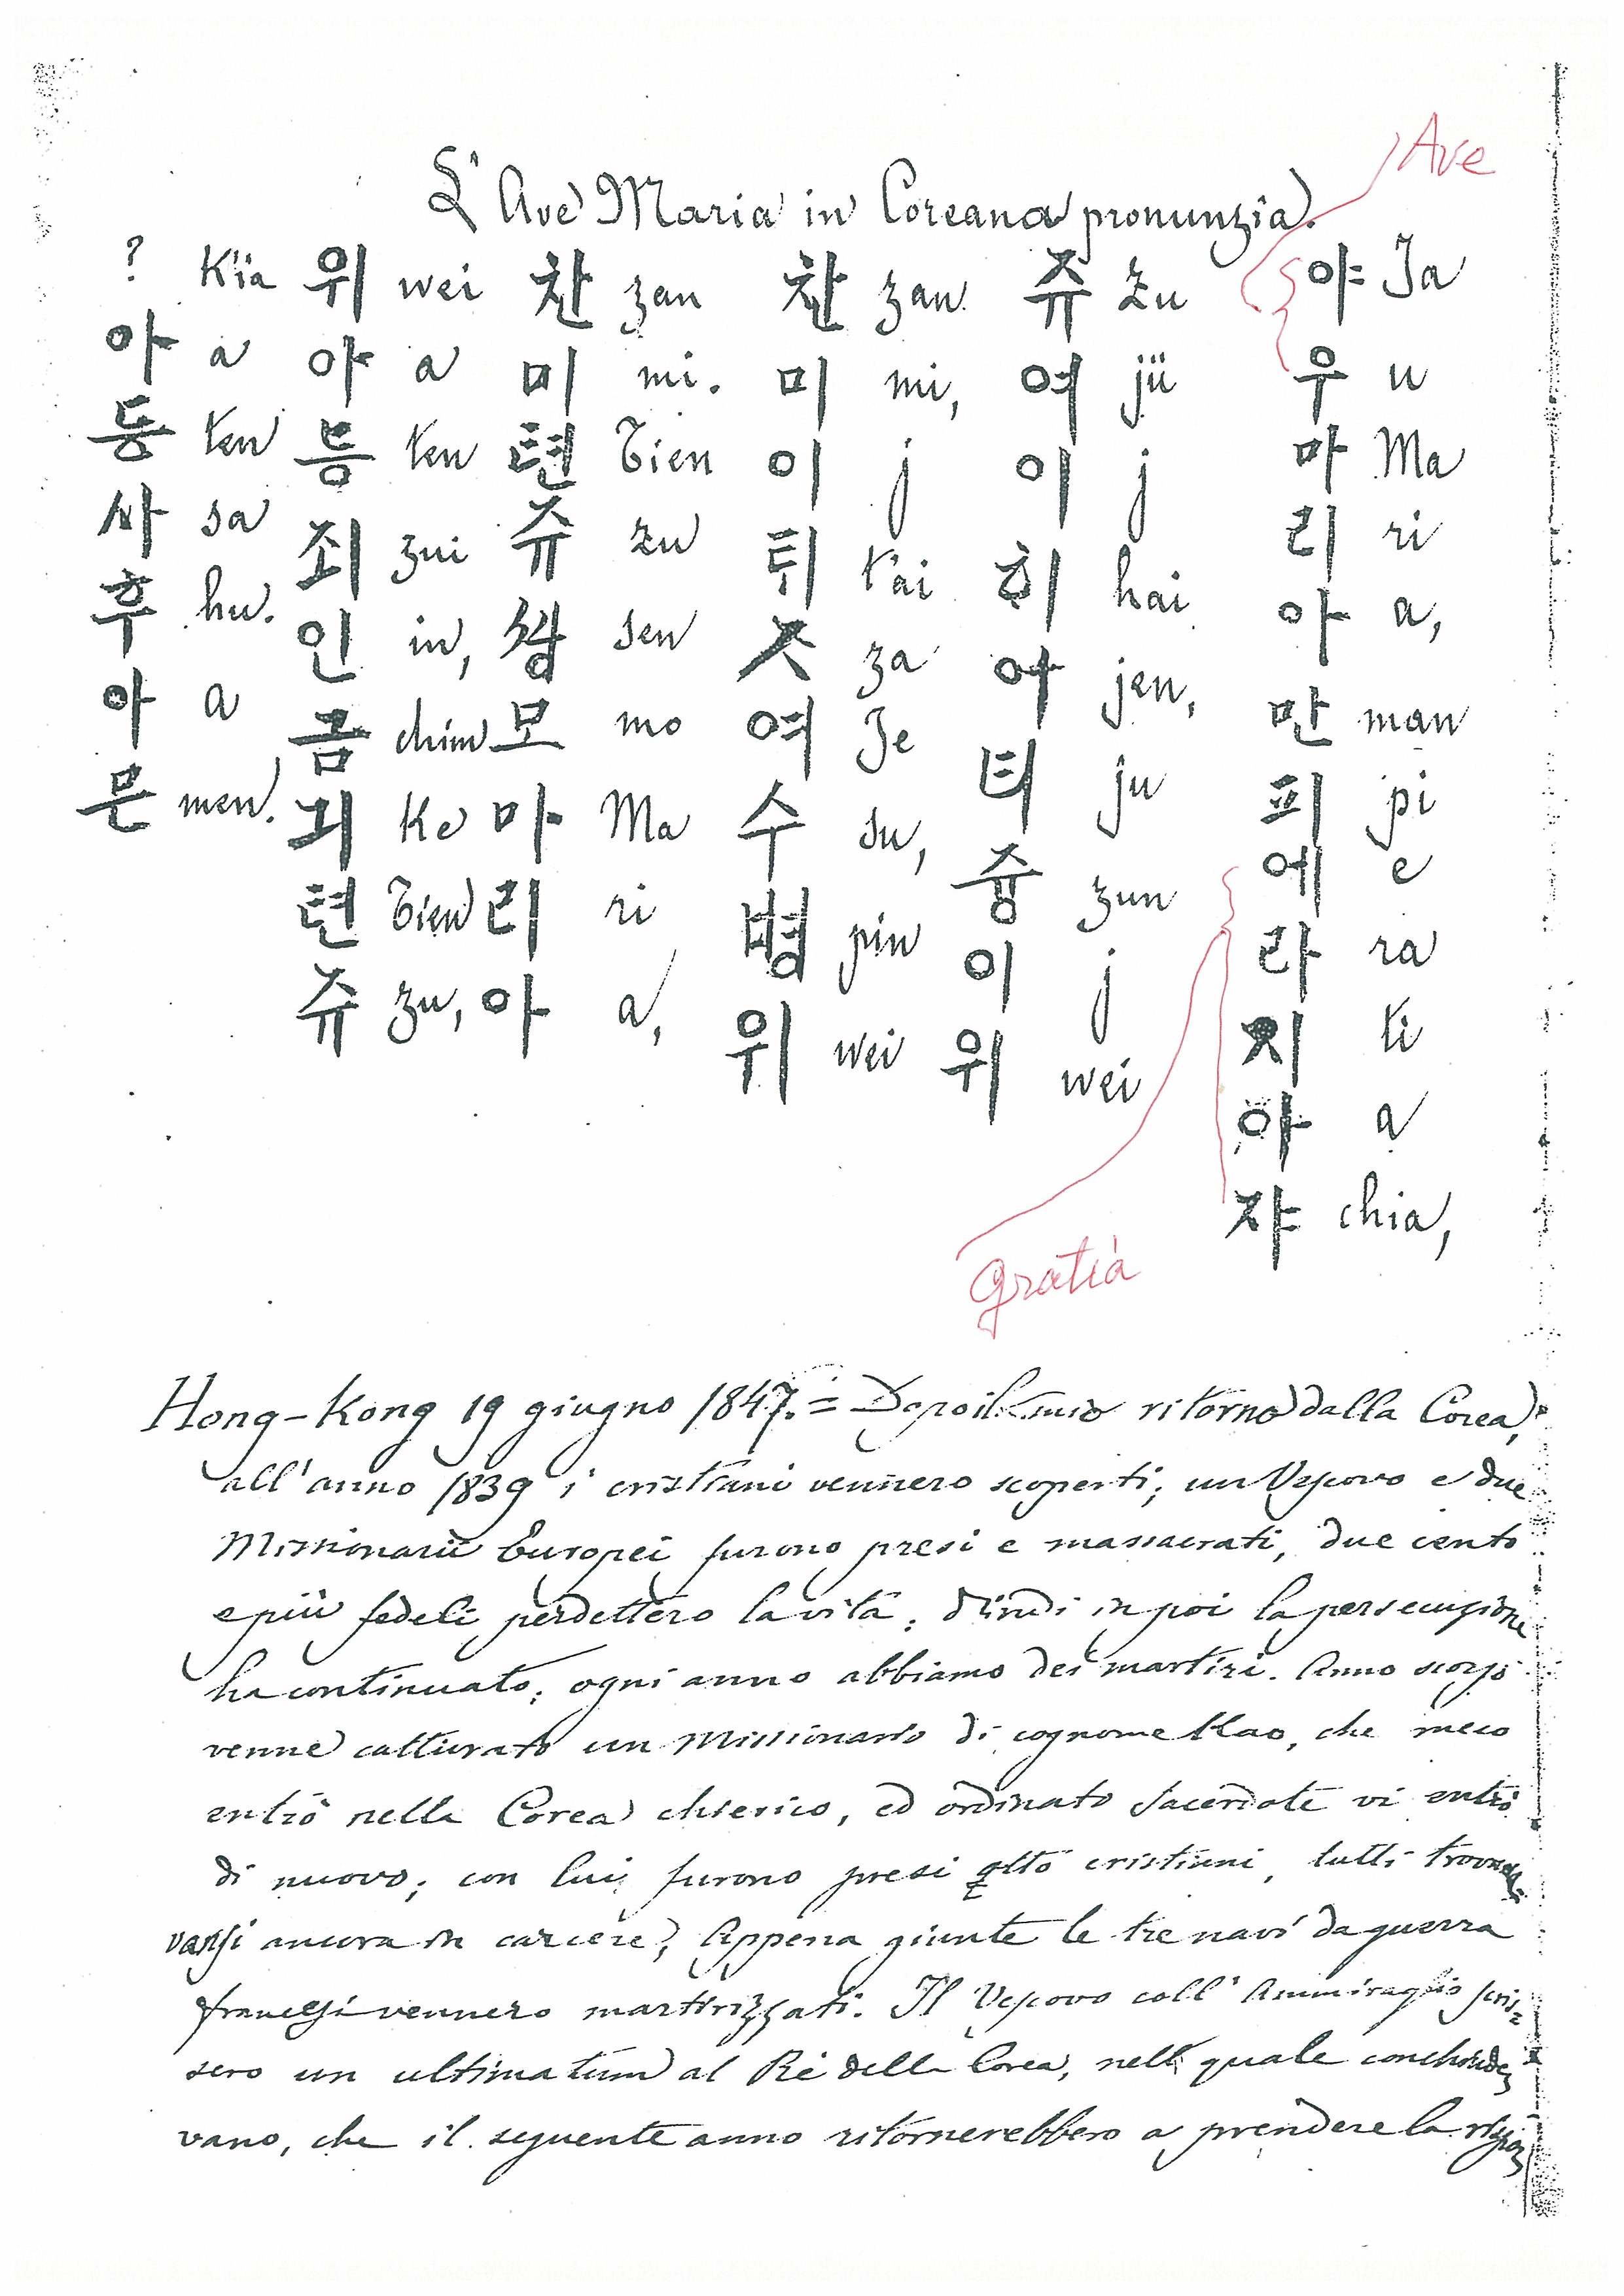 L'Ave Maria in Coreana pronunzia.
Ave
야 우 마 리 아 만 피 에 라 지 아 쟈
Ja u Ma ri a, man pi e ra ti a chia,
쥬 여 이 히 야 녀 즁 이 위
zu jü j hai jen, ju zun j wei
찬 미 이 튀 ᄌᆞ 여 수 병 위
zan mi, j t'ai za Je su, pin wei
찬 미 텬 쥬 셩 모 마 리 아
zan mi. Tien zu sen mo Ma ri a,
위 아 등 죄 인 금 긔 텬 쥬
wei a ten zui in, chim ke Tien zu,
? 아 등 사 후 아 믄
Kïa a ten sa hu. a men.
Gratia
Hong-Kong 19 giugno 1847. = Dopo il mio ritorno dalla Corea,
all'anno 1839 i cristiani vennero scoperti; un Vescovo e due
Missionarii Europei furono presi e massacrati, due cento
e più fedeli perdettero la vita; d'indi in poi la persecuzione
ha continuato; ogni anno abbiamo dei martiri. Anno scorso
venne catturato un Missionario di cognome Kao, che meco
entrò nella Corea chierico, ed ordinato Sacerdote vi entrò
di nuovo; con lui furono presi otto cristiani, tutti trova-
vansi ancora in carcere; Appena giunte le tre navi da guerra
francesi vennero martirizzati. Il Vescovo coll' Ammiraglio scris=
sero un ultimatum al Re della Corea, nell quale conchiude-
vano, che il seguente anno ritornerebbero a prendere la